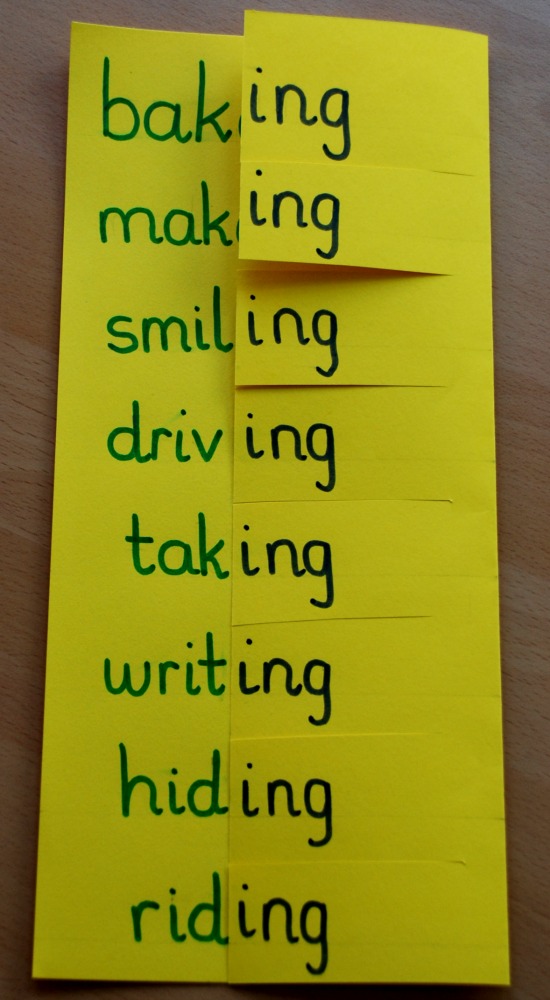 baking
making
smiling
driving
taking
writing
hiding
riding